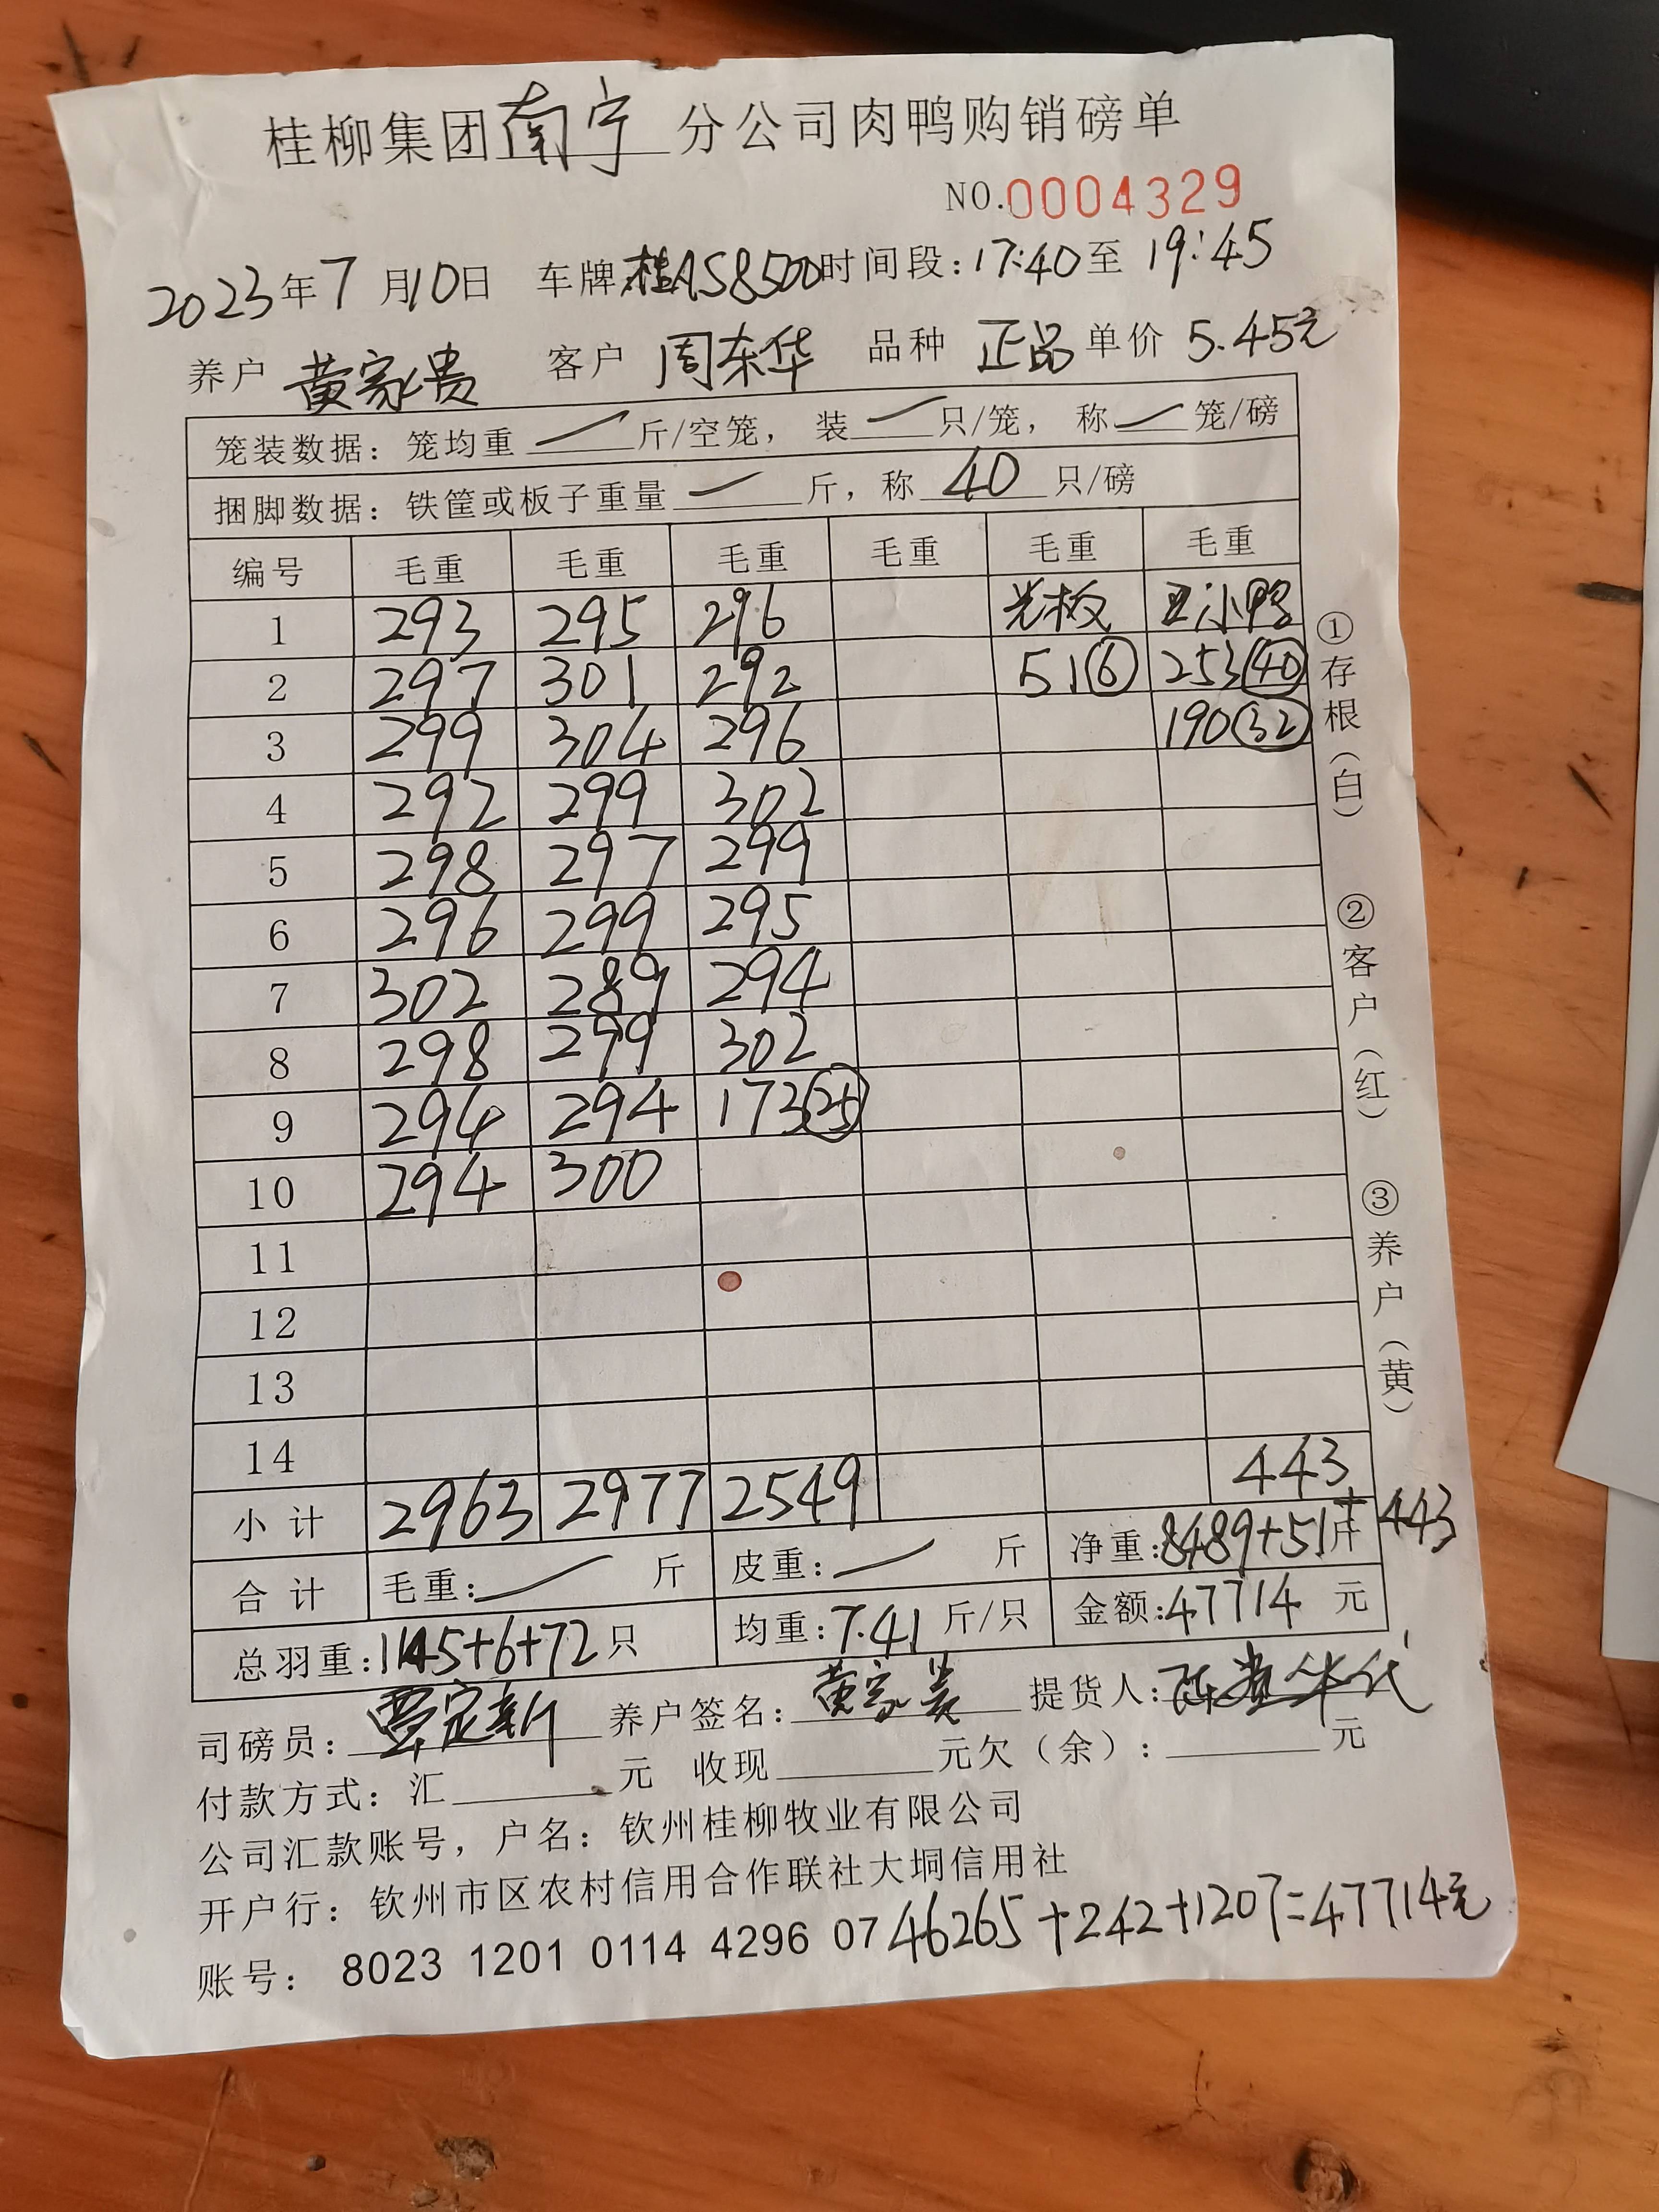 桂柳集团南宁分公司肉鸭购销磅单
NO.0004329
2023年7月10日 车牌桂A58500时间段:17:40至19:45
养户 黄家贵 客户 周东华 品种 正品 单价 5.45元
笼装数据:笼均重 一 斤/空笼, 装 一 只/笼, 称 一 笼/磅
捆脚数据:铁筐或板子重量 一 斤,称 40 只/磅
编号 毛重 毛重 毛重 毛重 毛重 毛重
1 293 295 296 光板 小鸭
2 297 301 292 51⑥ 253㊵
3 299 304 296 190㉜
4 292 299 302
5 298 297 299
6 296 299 295
7 302 289 294
8 298 299 302
9 294 294 173㉕
10 294 300
11
12
13
14 443
小计 2963 2977 2549
合计 毛重:一 斤 皮重:一 斤 净重:8489+51斤+443
总羽重:1145+6+72只 均重:7.41斤/只 金额:47714元
司磅员:覃定新 养户签名:黄家贵 提货人:
付款方式:汇 元 收现 元欠(余): 元
公司汇款账号,户名:钦州桂柳牧业有限公司
开户行:钦州市区农村信用合作联社大垌信用社
账号: 8023 1201 0114 4296 07 46265+242+1207=47714元
①存根(白) ②客户(红) ③养户(黄)